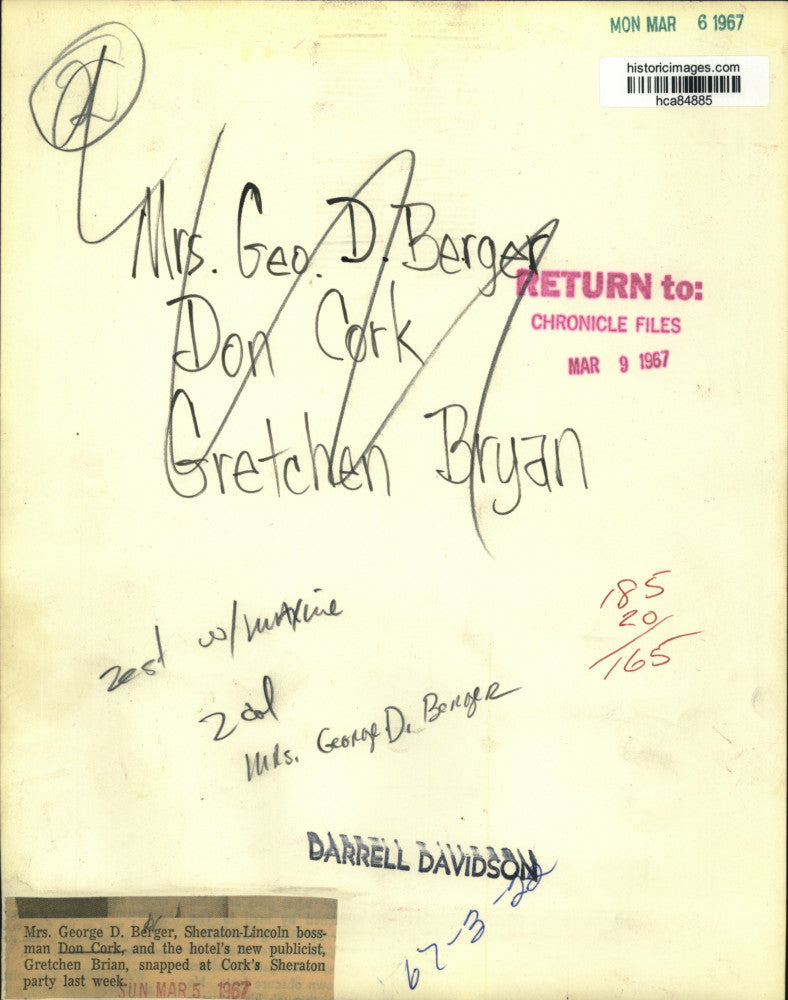 MON MAR 6 1967
historicimages.com
hca84885
2
Mrs. Geo. D. Berger
Don Cork
Gretchen Bryan
RETURN to:
CHRONICLE FILES
MAR 9 1967
185
20
165
zest w/ maxine
2 col
Mrs. George D. Berger
DARRELL DAVIDSON
67-3-22
Mrs. George D. Berger, Sheraton-Lincoln boss-
man Don Cork, and the hotel's new publicist,
Gretchen Brian, snapped at Cork's Sheraton
party last week.
SUN MAR 5 1967